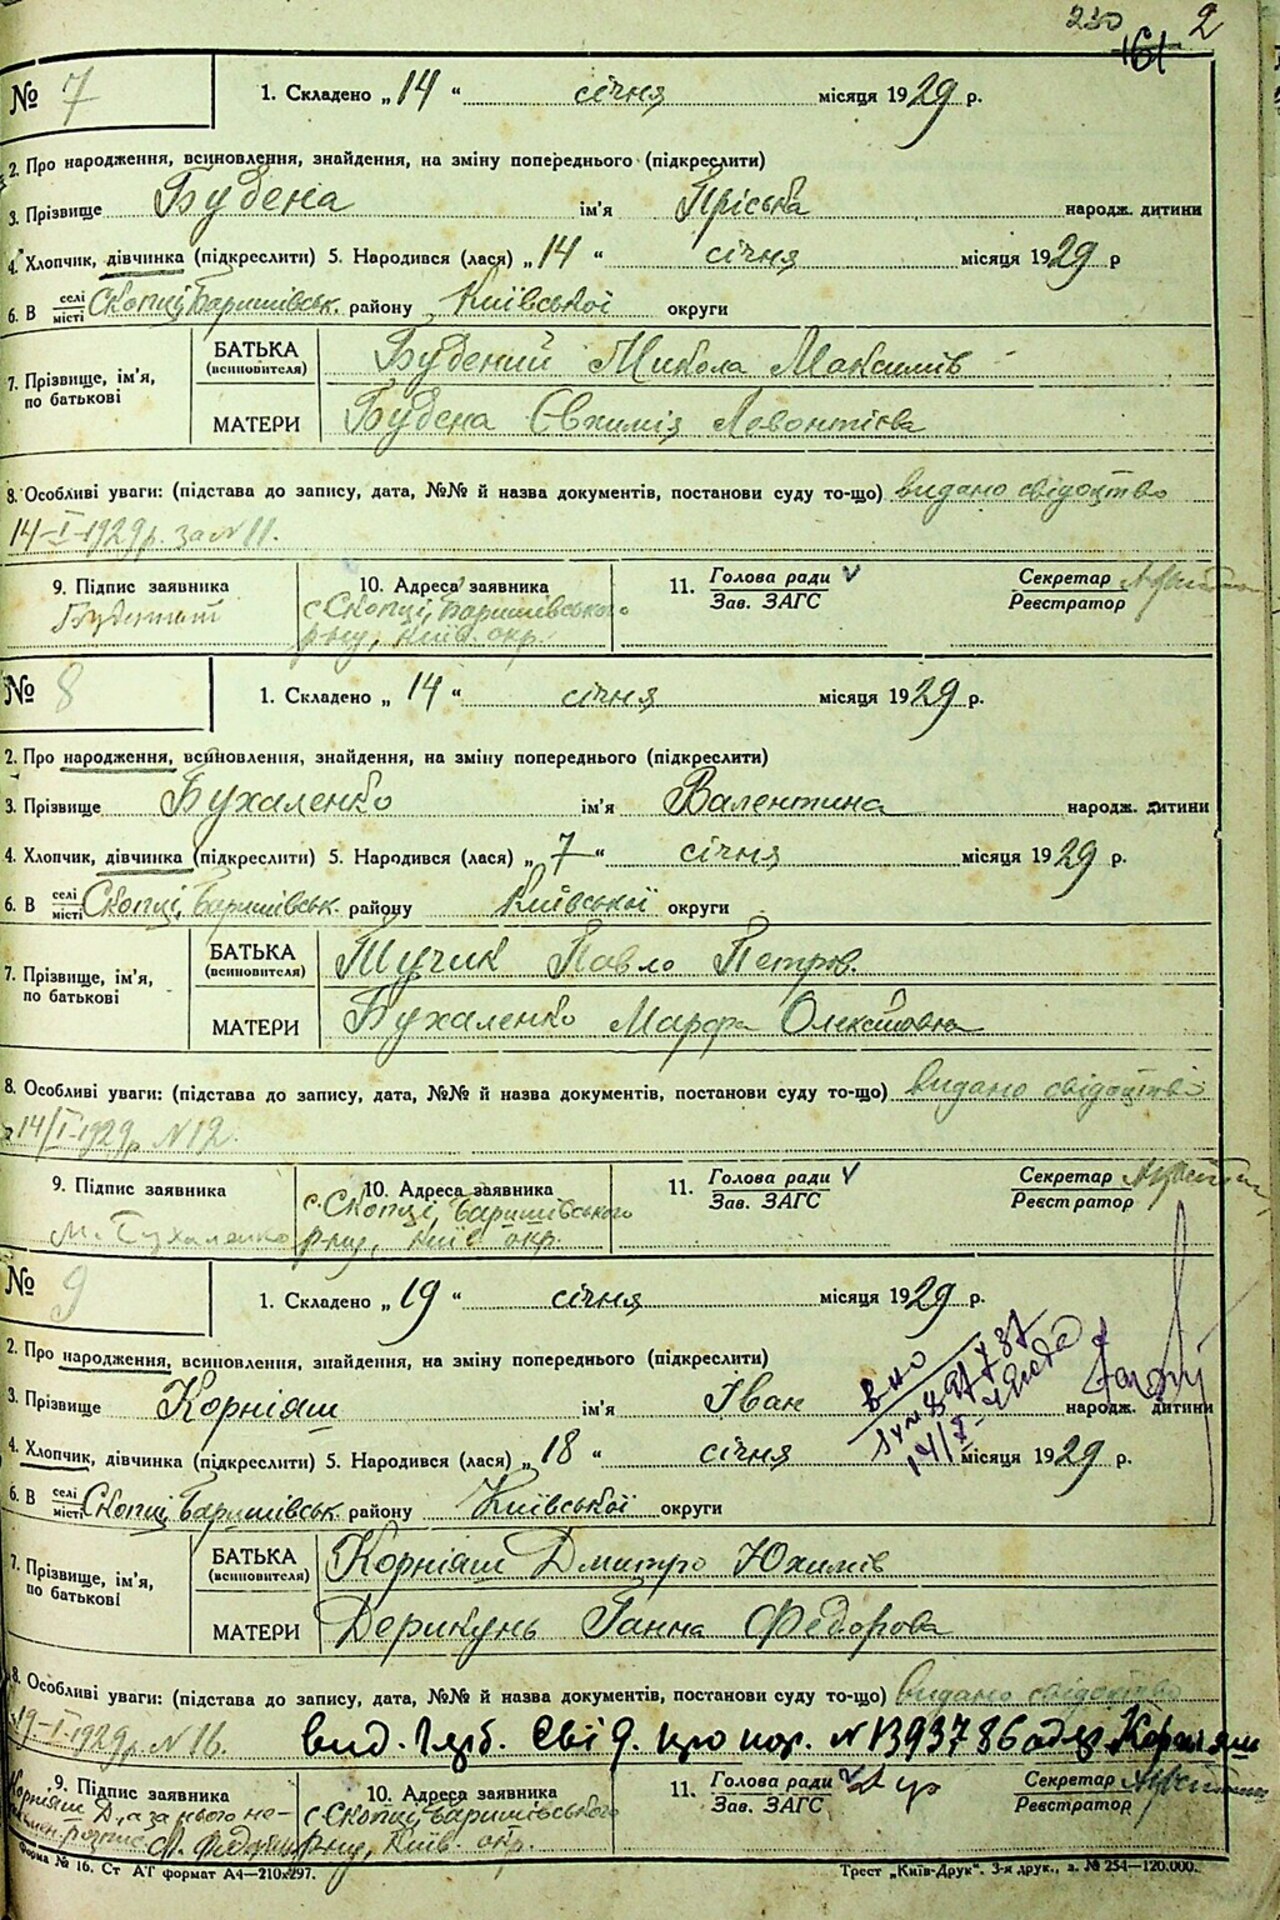 230 161 2
№ 7 1. Складено „14“ січня місяця 1929 р.
2. Про народження, всиновлення, знайдення, на зміну попереднього (підкреслити)
3. Прізвище Будена ім'я Пріська народж. дитини
4. Хлопчик, дівчинка (підкреслити) 5. Народився (лася) „14“ січня місяця 1929 р
6. В селі місті Скопці, Баришівськ. району Київської округи
7. Прізвище, ім'я, по батькові
БАТЬКА (всиновителя) Будений Микола Максимів
МАТЕРИ Будена Євхимія Левонтієва
8. Особливі уваги: (підстава до запису, дата, №№ й назва документів, постанови суду то-що) видано свідоцтво
14-I-1929р. за № 11.
9. Підпис заявника 10. Адреса заявника 11. Голова ради Секретар
Зав. ЗАГС Реєстратор
с Скопці, Баришівського
р-ну, Київ. окр.
№ 8 1. Складено „14“ січня місяця 1929 р.
2. Про народження, всиновлення, знайдення, на зміну попереднього (підкреслити)
3. Прізвище Бухаленко ім'я Валентина народж. дитини
4. Хлопчик, дівчинка (підкреслити) 5. Народився (лася) „7“ січня місяця 1929 р.
6. В селі місті Скопці, Баришівськ. району Київської округи
7. Прізвище, ім'я, по батькові
БАТЬКА (всиновителя) Тучик Павло Петров.
МАТЕРИ Бухаленко Марфа Олексіївна
8. Особливі уваги: (підстава до запису, дата, №№ й назва документів, постанови суду то-що) видано свідоцтво
14/I-1929р № 12.
9. Підпис заявника 10. Адреса заявника 11. Голова ради Секретар
Зав. ЗАГС Реєстратор
М. Бухаленко с. Скопці, Баришівського
р-ну, Київ окр.
№ 9 1. Складено „19“ січня місяця 1929 р.
2. Про народження, всиновлення, знайдення, на зміну попереднього (підкреслити)
3. Прізвище Корніяш ім'я Іван народж. дитини
4. Хлопчик, дівчинка (підкреслити) 5. Народився (лася) „18“ січня місяця 1929 р.
6. В селі місті Скопці, Баришівськ. району Київської округи
7. Прізвище, ім'я, по батькові
БАТЬКА (всиновителя) Корніяш Дмитро Юхимів
МАТЕРИ Дерикунь Ганна Федорова
8. Особливі уваги: (підстава до запису, дата, №№ й назва документів, постанови суду то-що) видано свідоцтво
19-I-1929р. № 16. вид. свід. про нар. № 1393786
9. Підпис заявника 10. Адреса заявника 11. Голова ради Секретар
Зав. ЗАГС Реєстратор
Корніяш Д., а за нього не-
с Скопці, Баришівського
р-ну, Київ. окр.
Форма № 16. Ст АТ формат А4—210х297. Трест „Київ-Друк“. 3-я друк., з. № 254—120.000.